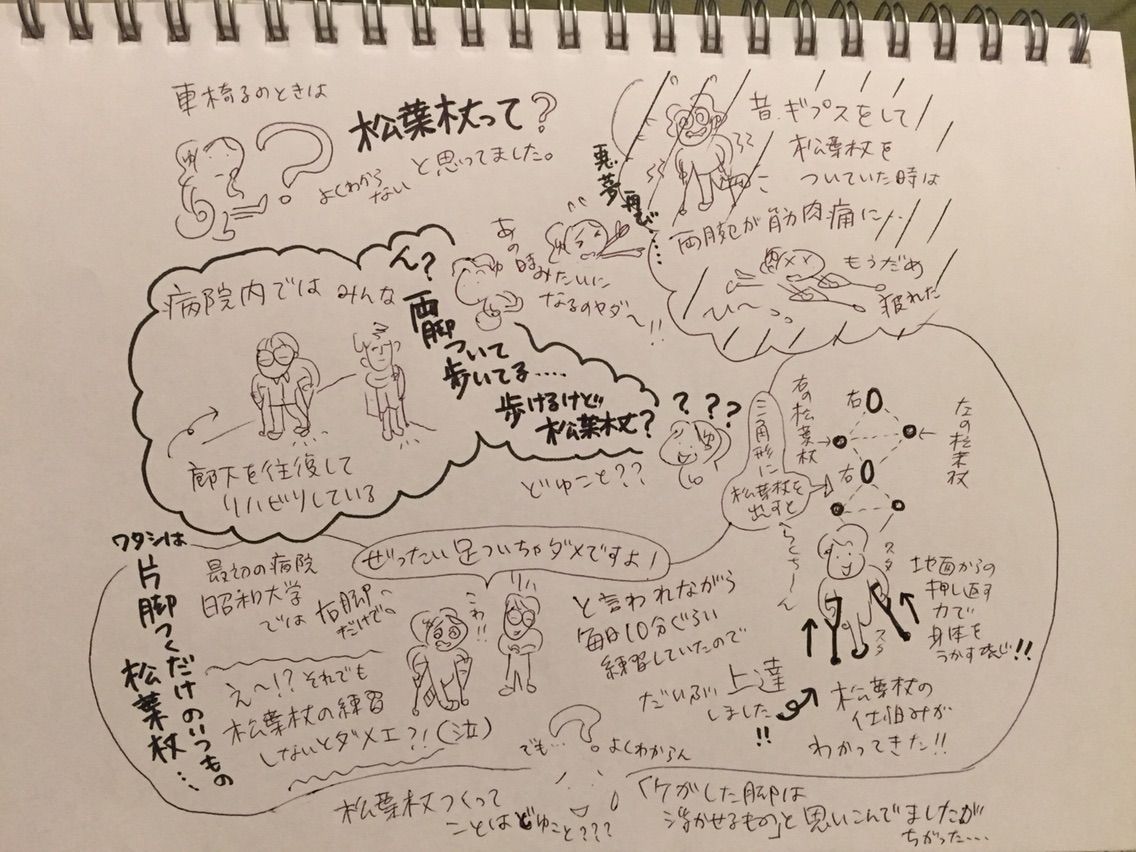 車椅子のときは
松葉杖って?
よくわから
ない
と思ってました。
昔、ギプスをして
松葉杖を
ついていた時は
両腕が筋肉痛に…
もうだめ
疲れた
ひ〜っっ
悪夢再び…
あの時みたいに
なるのヤダ〜!!
病院内では みんな
廊下を往復して
リハビリしている
ん?
両脚
ついて
歩いてる……
歩けるけど
松葉杖?
???
どゆこと??
ワタシは
片脚つくだけのいつもの
松葉杖…
最初の病院
昭和大学
では 右脚
だけで
ぜったい足ついちゃダメですよ!
こわ!!
と言われながら
毎日10分ぐらい
練習していたので
だいぶ 上達
しました
!!
え〜!?それでも
松葉杖の練習
しないとダメェ?!(泣)
三角形に
松葉杖を
出すと
らくちーん
右の松葉杖
右
左の松葉杖
右
スタ
スタ
地面からの
押し返す
力で
身体を
うかす感じ!!
松葉杖の
仕組みが
わかってきた!!
でも…
?。よくわからん
松葉杖つくって
ことはどゆこと???
「ケガした脚は
浮かせるもの」と思いこんでましたが
ちがった…